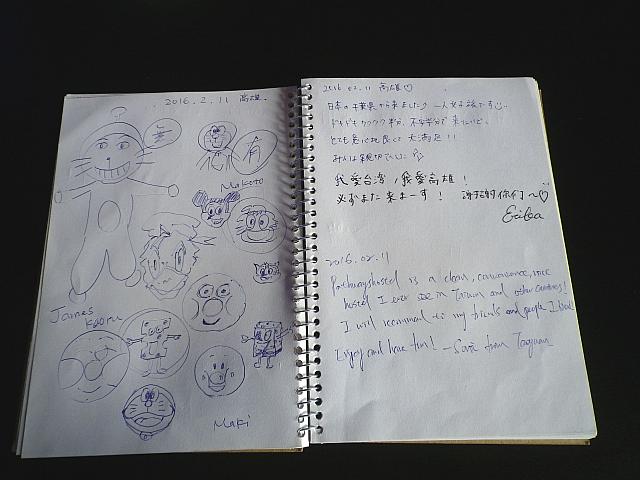 2016.2.11 高雄.
無
有
Makoto
James
Kaoru
Maki
2016.02.11 高雄♡
日本の千葉県から来ました♪ 一人女子旅です
ドキドキワクワク半分、不安半分で来たけど、
とても居心地良くて 大満足!!
みんな親切でした
我愛台湾!我愛高雄!
必ずまた来まーす! 謝謝你们~♡
Erika
2016.02.11
Pathwayhostel is a clean, convenience, nice
hostel I ever see in Taiwan and other countries!
I will recommend to my friends and people I
Enjoy and have fun! — from